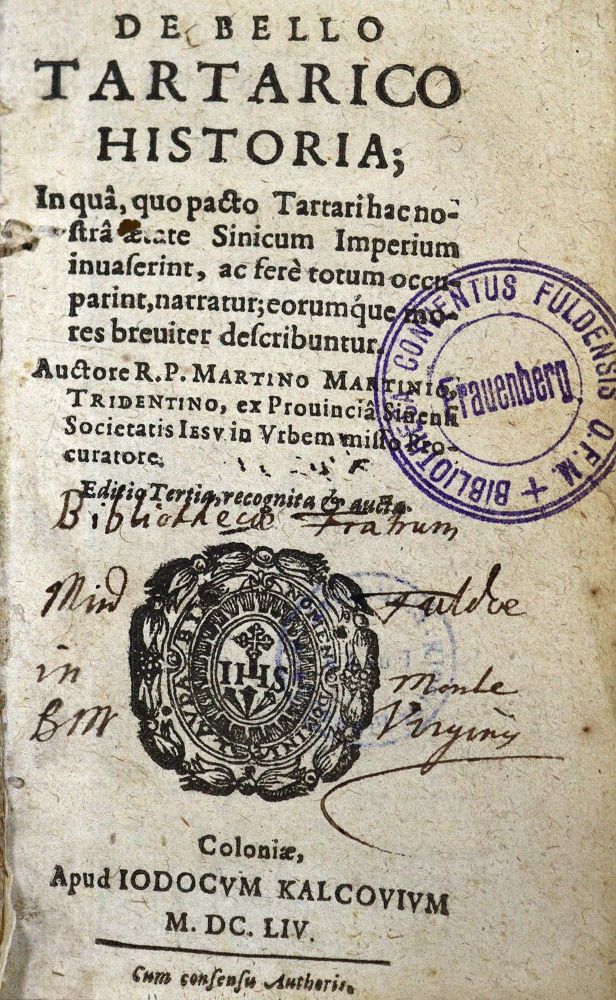 DE BELLO
TARTARICO
HISTORIA;
In quâ, quo pacto Tartari hac no-
strâ ætate Sinicum Imperium
inuaserint, ac ferè totum occu-
parint, narratur; eorumque mo-
res breuiter describuntur.
Auctore R.P. MARTINO MARTINIO,
TRIDENTINO, ex Prouinciâ Sinensi
Societatis IESV in Vrbem misso Pro-
curatore.
Editio Tertia, recognita & aucta.
BIBLIOTHECA CONVENTUS FULDENSIS O.F.M. +
Frauenberg.
Bibliothecæ Fratrum
Min Fuldæ
in Monte
BM Virginis
NOMEN DOMINI LAUDABILE
IHS
Coloniæ,
Apud IODOCVM KALCOVIVM
M. DC. LIV.
Cum consensu Authoris.